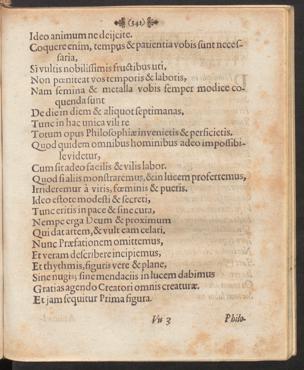 (341)
Ideo animum ne dejicite.
Coquere enim, tempus & patientia vobis sunt neces-
saria,
Si vultis nobilissimis fructibus uti,
Non pœniteat vos temporis & laboris,
Nam semina & metalla vobis semper modice co-
quenda sunt
De die in diem & aliquot septimanas,
Tunc in hac unica vili re
Totum opus Philosophiæ invenietis & perficietis.
Quod quidem omnibus hominibus adeo impossibi-
le videtur,
Cum sit adeo facilis & vilis labor.
Quod si aliis monstraremus, & in lucem proferremus,
Irrideremur à viris, fœminis & pueris.
Ideo estote modesti & secreti,
Tunc eritis in pace & sine cura,
Nempe erga Deum & proximum
Qui dat artem, & vult eam celari.
Nunc Præfationem omittemus,
Et veram describere incipiemus,
Et rhythmis, figuris vere & plane,
Sine nugis, sine mendaciis in lucem dabimus
Gratias agendo Creatori omnis creaturæ.
Et jam sequitur Prima figura.
Vu 3
Philo-